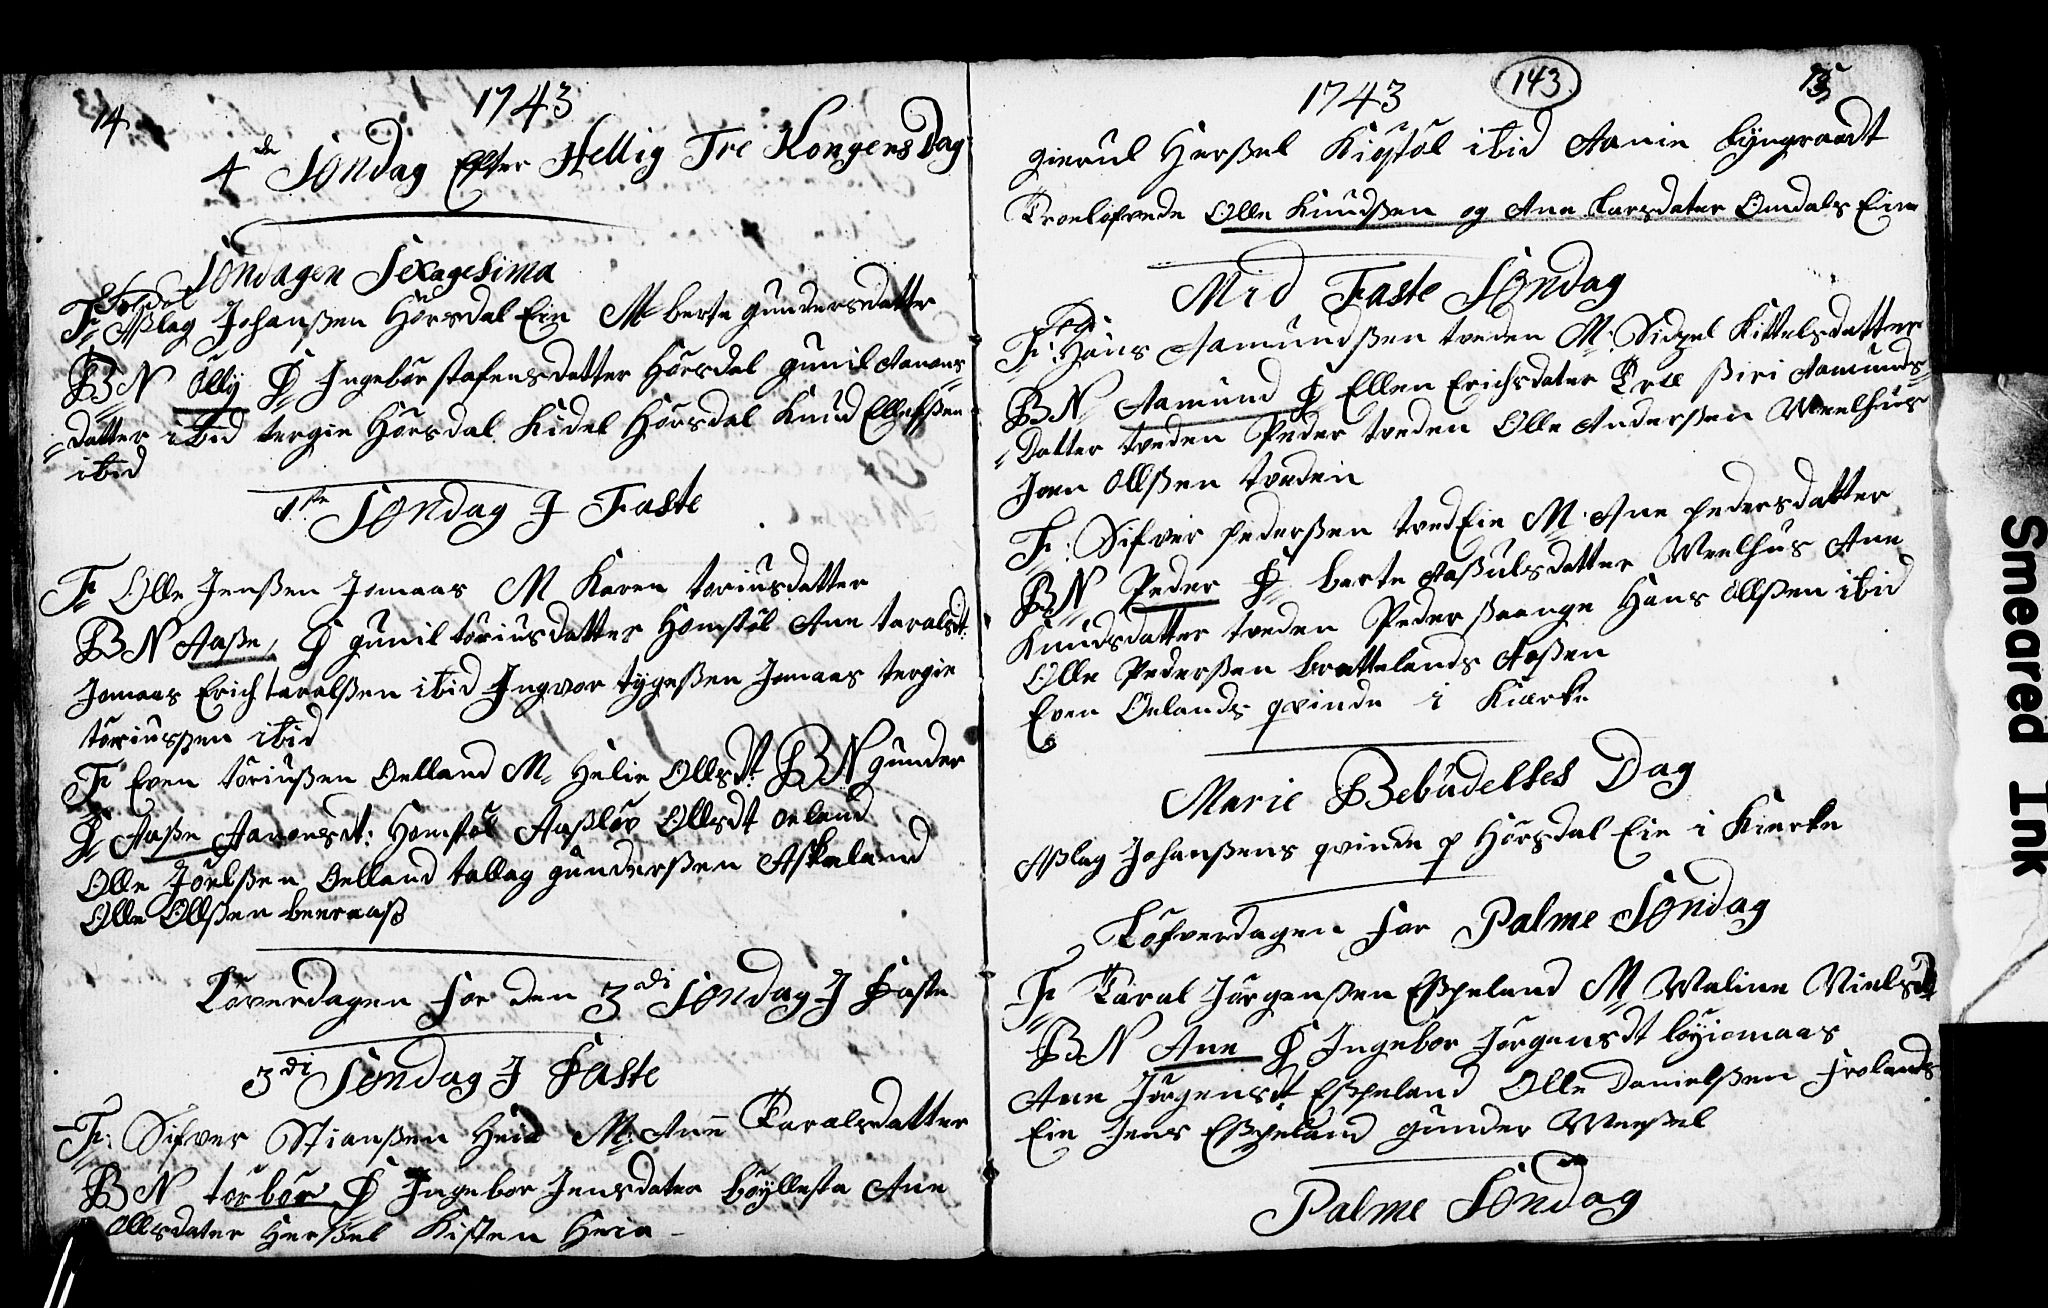 14
1743
4de Søndag Efter Hellig Tre Kongers Dag
Søndagen Sexagesima
F Aßlag Johanßen Hørsdal Eie M berte gundersdatter
BN Olly F Ingebor stafensdatter Hørsdal gunil Aanons
datter ibid tergie Hørsdal Kidel Hørsdal Knud Ellefßen
ibid
1ste Søndag J Faste
F Olle Jenßen Jomaas M Karen toriusdatter
BN Aaße, F gunil toriusdatter Homstøl Ane taralsdt
Jomaas Erich taralßen ibid Ingvor tygeßen Jomaas tergie
toriusßen ibid
F Even toriusßen Oelland M Helie Ollsdt BN gunder
F Aaße Aavonsdt: Homstøl Aaßlov Ollsdt oeland
Olle Joelßen Oelland tallag gunderßen Askeland
Olle Ollßen beeraas
Løverdagen for den 3die Søndag J Faste
3di Søndag J Faste
F: Sifver Stianßen Heia M: Ane Taralsdatter
BN torbor F Ingebor Jensdater bøyllesta Ane
Ollsdater Herßel Kisten Heia
1743
143
gierul Herßel ibid Aanie Lyngraadt
Troelofvede Olle Knudßen og Ane Larsdater Omdals Eie
Mid Faste Søndag
F: Hans Aamundßen tveden M: Sidzel Kittelsdatter
BN Aamund F Ellen Erichsdater Siri Aamunds
datter tveden Peder tveden Olle Anderßen Weelhus
Joen Ollßen tveden
F: Sifver pederßen tvedEie M: Ane pedersdatter
BN Peder F berte Aaßulsdatter Weelhus Ane
Knudsdatter tveden Peder Haane Hans Ollßen ibid
Olle Pederßen brattelands Aaßen
Even Oelands qvinde i Kierke
Marie Bebudelses Dag
Aßlag Johanßens qvinde p Hørsdal Eie i Kierke
Løfverdagen for Palme Søndag
F Taral Jørgenßen Eßpeland M Maline Nielsdt
BN Ane F Ingebor Jørgensdt løyiomaas
Ane Jørgensdt Eßpeland Olle Danielßen Frolands
Eie Jens Eßpeland gunder Meeßel
Palme Søndag